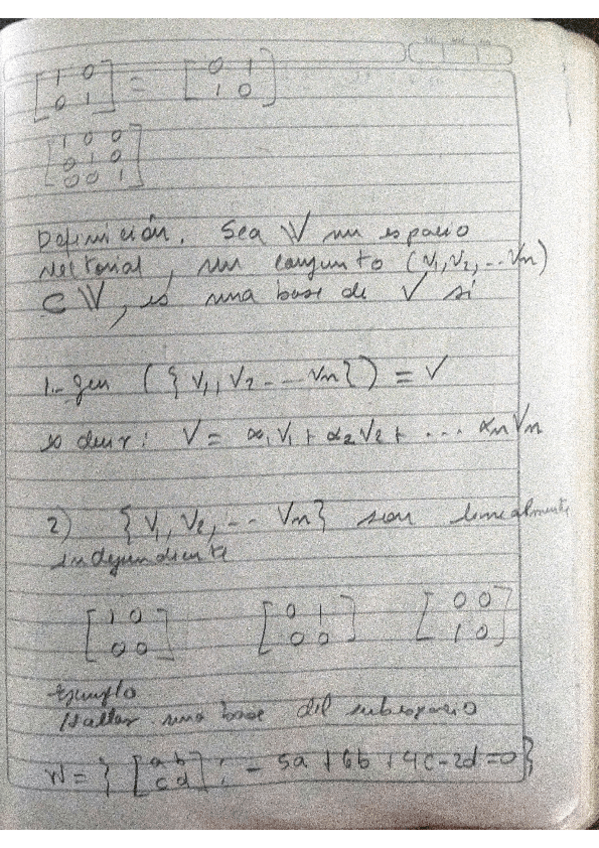 [1 0
0 1] = [0 1
1 0]
[1 0 0
0 1 0
0 0 1]
Definición. Sea V un espacio
vectorial, un conjunto (v1, v2, ... vn)
⊂ V, es una base de V si
1.- gen ({ v1, v2 --- vn }) = V
es decir: V = α1 v1 + α2 v2 + ... αn vn
2) { v1, v2, ... vn } sean linealmente
independiente
[1 0
0 0] [0 1
0 0] [0 0
1 0]
Ejemplo
Hallar una base del subespacio
W = { [a b
c d] ; - 5a + 6b + 4c - 2d = 0 }